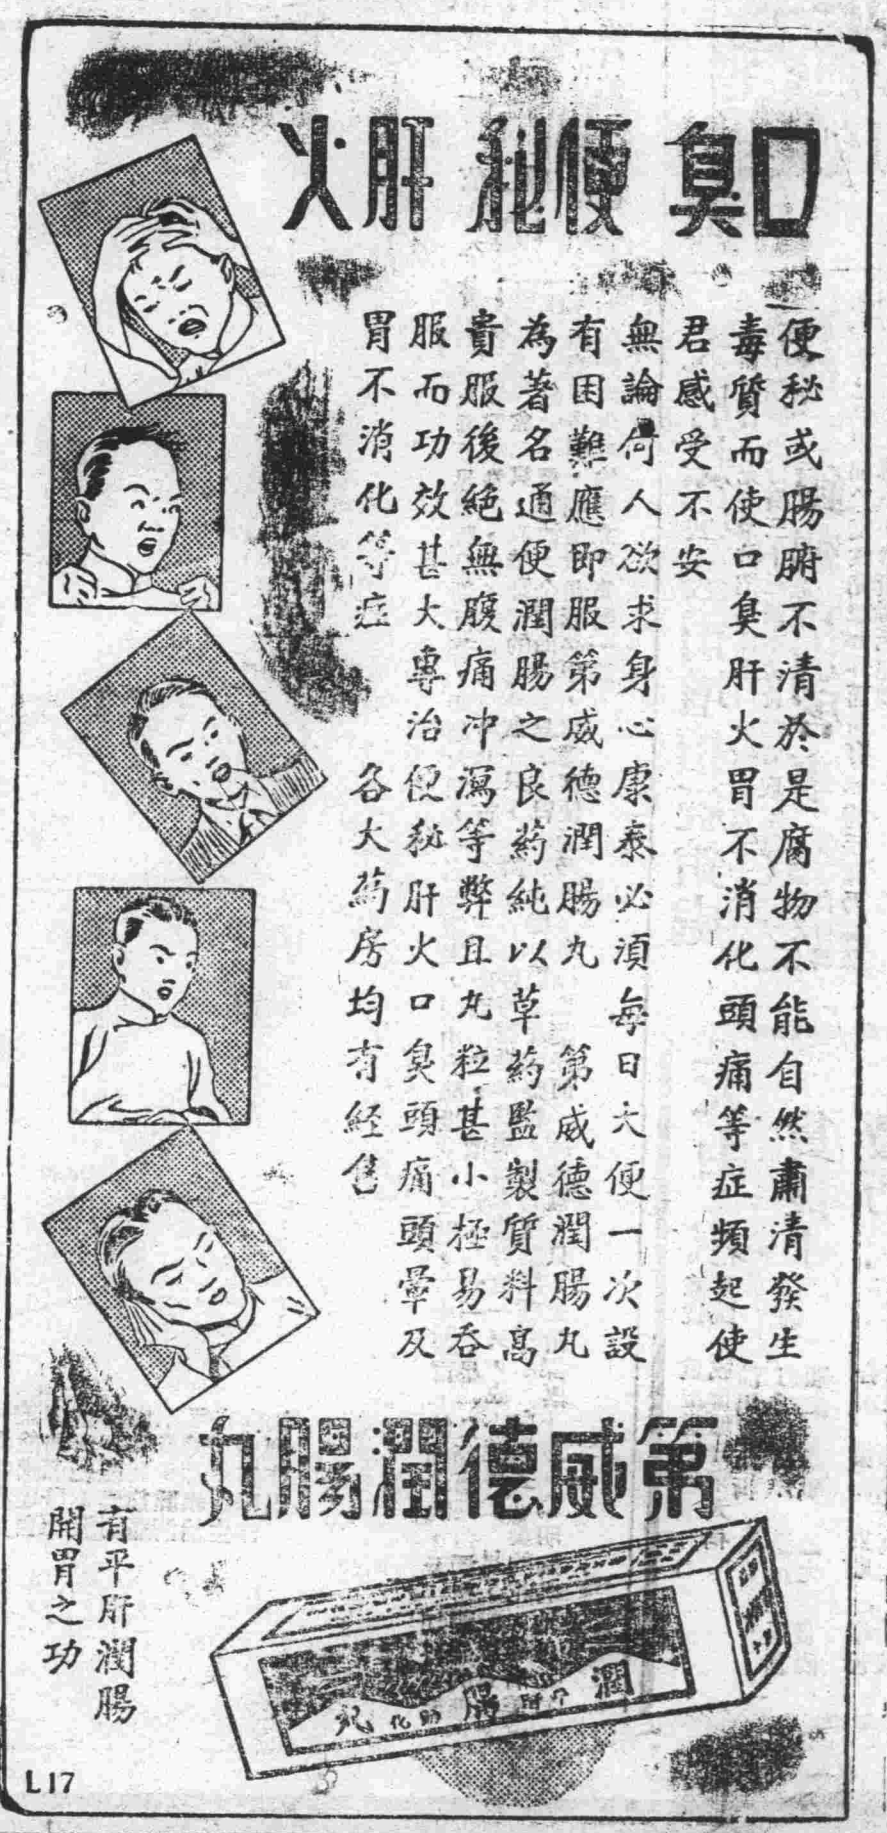 口臭 便秘 肝火
便秘或腸腑不清於是腐物不能自然肅清發生
毒質而使口臭肝火胃不消化頭痛等症頻起使
君感受不安
無論何人欲求身心康泰必須每日大便一次設
有困難應即服第威德潤腸丸　第威德潤腸丸
為著名通便潤腸之良葯純以草葯監製質料高
貴服後絕無腹痛冲瀉等弊且丸粒甚小極易吞
服而功效甚大專治便秘肝火口臭頭痛頭暈及
胃不消化等症　各大葯房均有經售
第威德潤腸丸
潤腸丸
平肝
助化
有平肝潤腸
開胃之功
L17